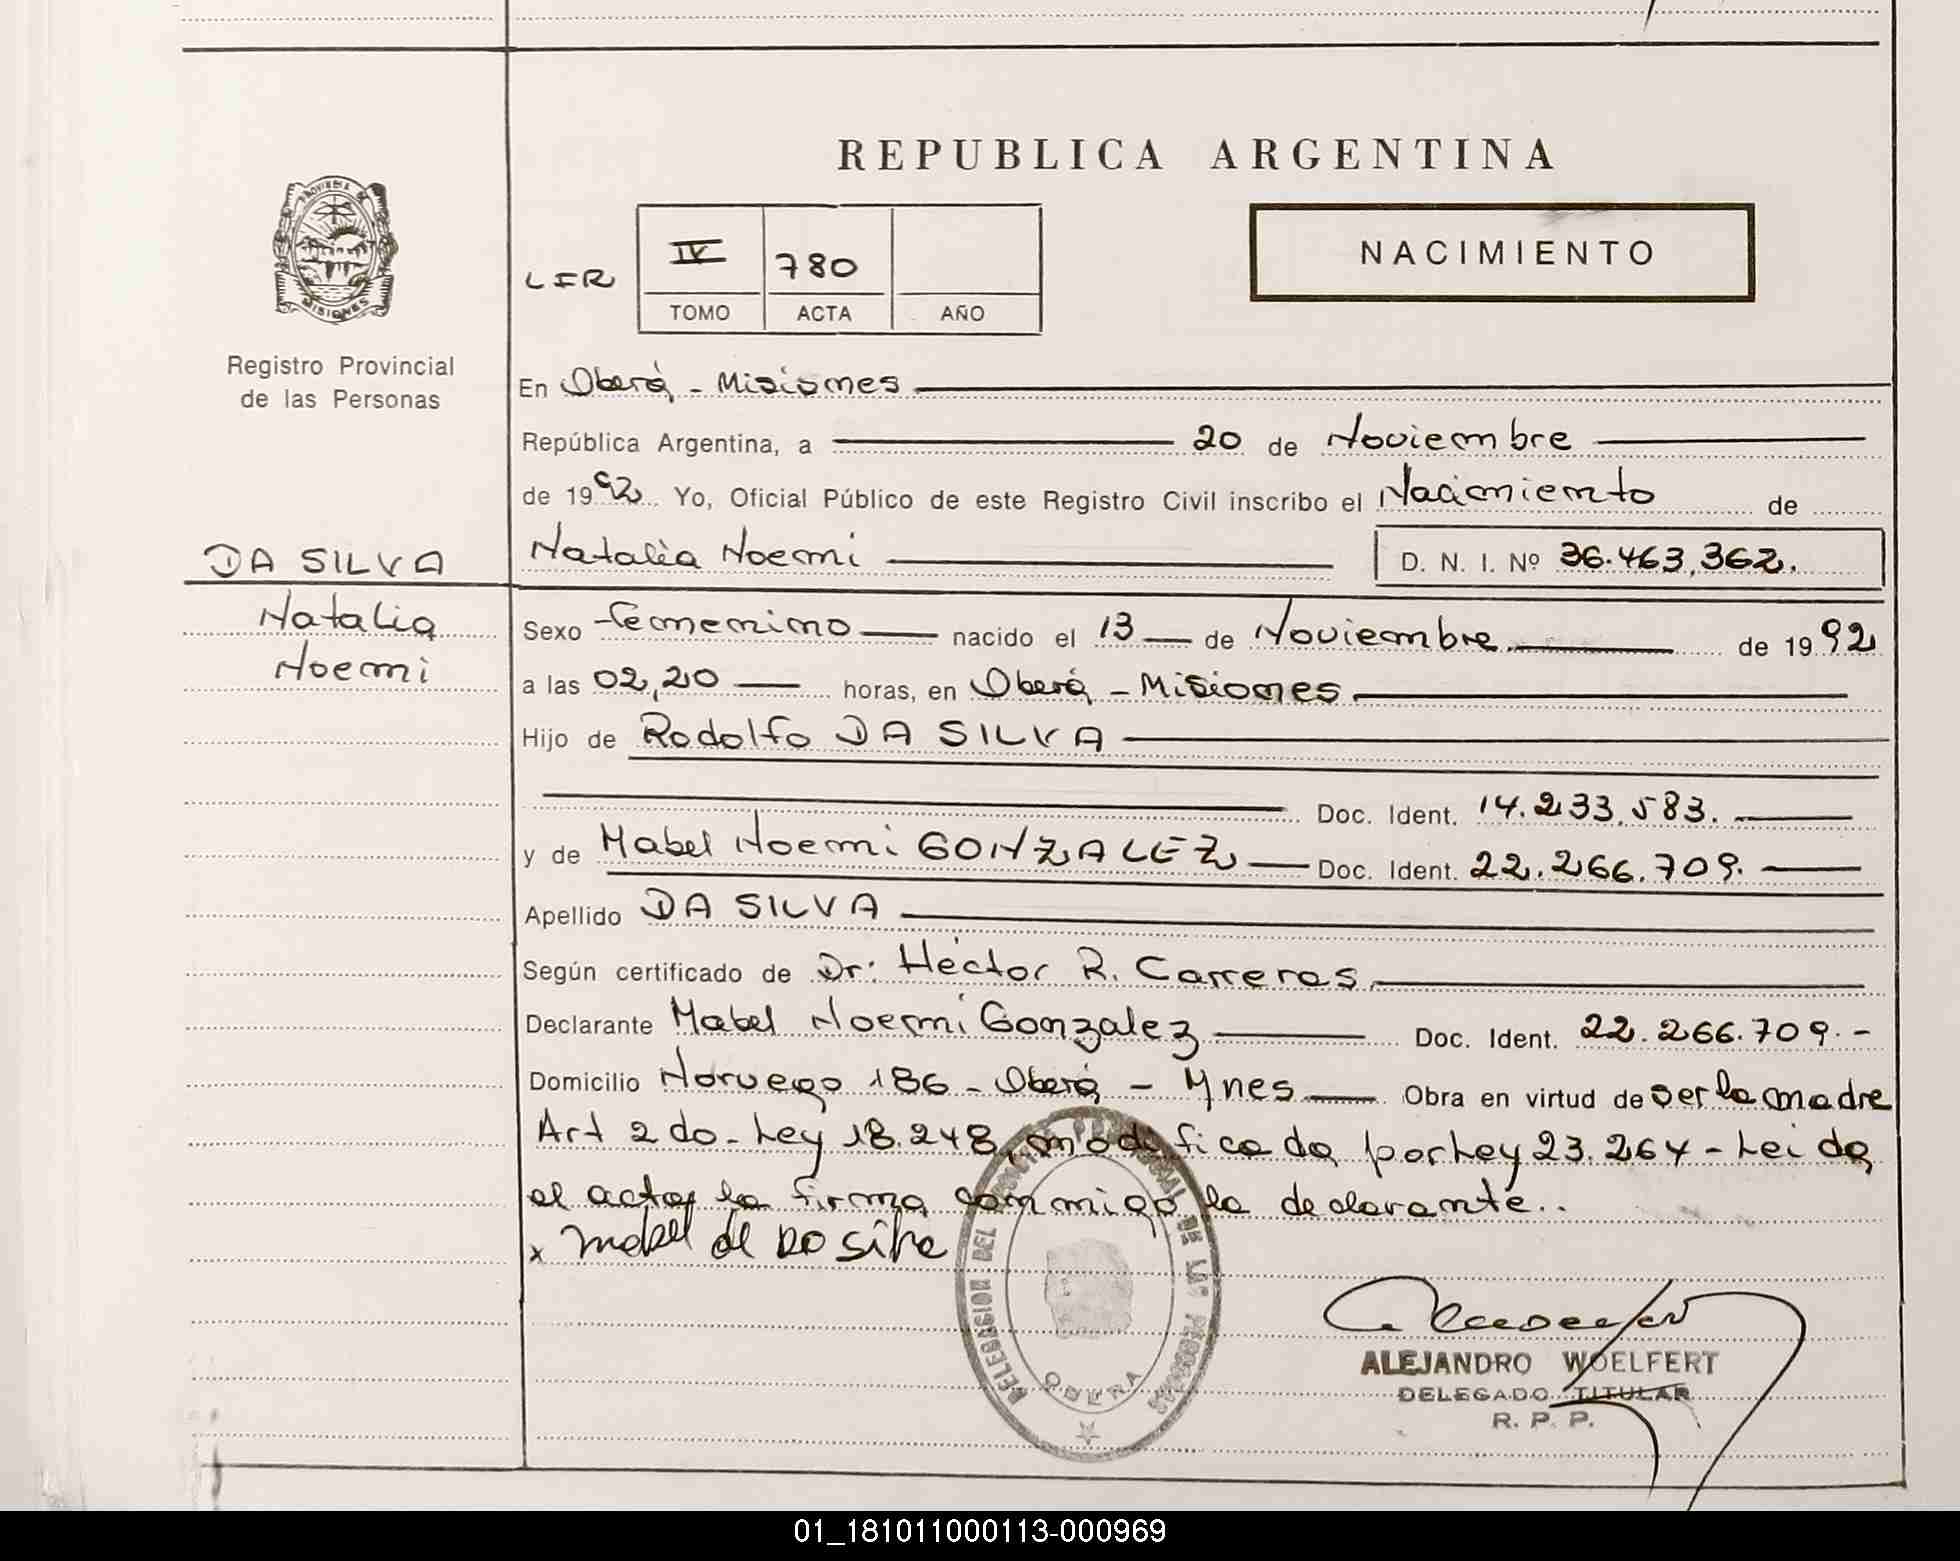 REPUBLICA ARGENTINA
PROVINCIA DE
MISIONES
NACIMIENTO
LER
IV 780
TOMO ACTA AÑO
Registro Provincial
de las Personas
En Oberá - Misiones
República Argentina, a 20 de Noviembre
de 1992 Yo, Oficial Público de este Registro Civil inscribo el Nacimiento de
DA SILVA
Natalia Noemi D. N. I. Nº 36.463.362.
Natalia
Noemi
Sexo Femenino nacido el 13 de Noviembre de 1992
a las 02,20 horas, en Oberá - Misiones
Hijo de Rodolfo DA SILVA
Doc. Ident. 14.233.583.
y de Mabel Noemi GONZALEZ Doc. Ident. 22.266.709.
Apellido DA SILVA
Según certificado de Dr: Héctor R. Carreras
Declarante Mabel Noemi Gonzalez Doc. Ident. 22.266.709.-
Domicilio Noruega 186 - Oberá - Mnes Obra en virtud de ser la madre
Art 2do - Ley 18.248, modificada por Ley 23.264 - Leida
el acta, la firma conmigo la declarante..
x Mabel de Da Silva
DELEGACION DEL REGISTRO PROVINCIAL DE LAS PERSONAS
OBERA
ALEJANDRO WOELFERT
DELEGADO TITULAR
R. P. P.
01_181011000113-000969